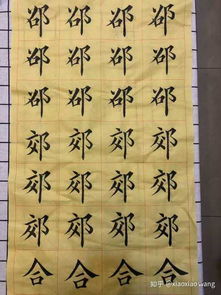 邵 邵 邵 邵
邵 邵 邵 邵
邵 邵 邵 邵
郊 郊 郊 郊
郊 郊 郊 郊
郊 郊 郊 郊
合 合 合 合
知乎 @xiaoxiao wang